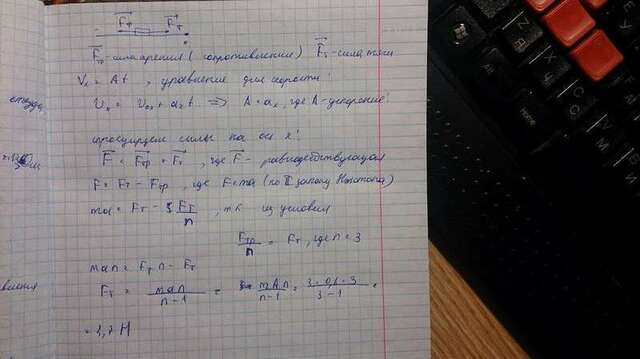 F_Т F_Т
F_тр - сила трения (сопротивления) F_т - сила тяги
V_x = At, уравнение для скорости!
откуда,
V_x = V_0x + a_x t => A = a_x, где A - ускорение!
проецируем силы на ось x!
F = F_тр + F_т, где F - равнодействующая
F = F_т - F_тр, где F = ma (по II закону Ньютона)
ma = F_т - F_т/n, т.к из условия
F_тр/n = F_т, где n = 3
man = F_т n - F_т
F_т = man/(n-1) = mAn/(n-1) = 3·0,6·3/(3-1) =
= 2,7 Н